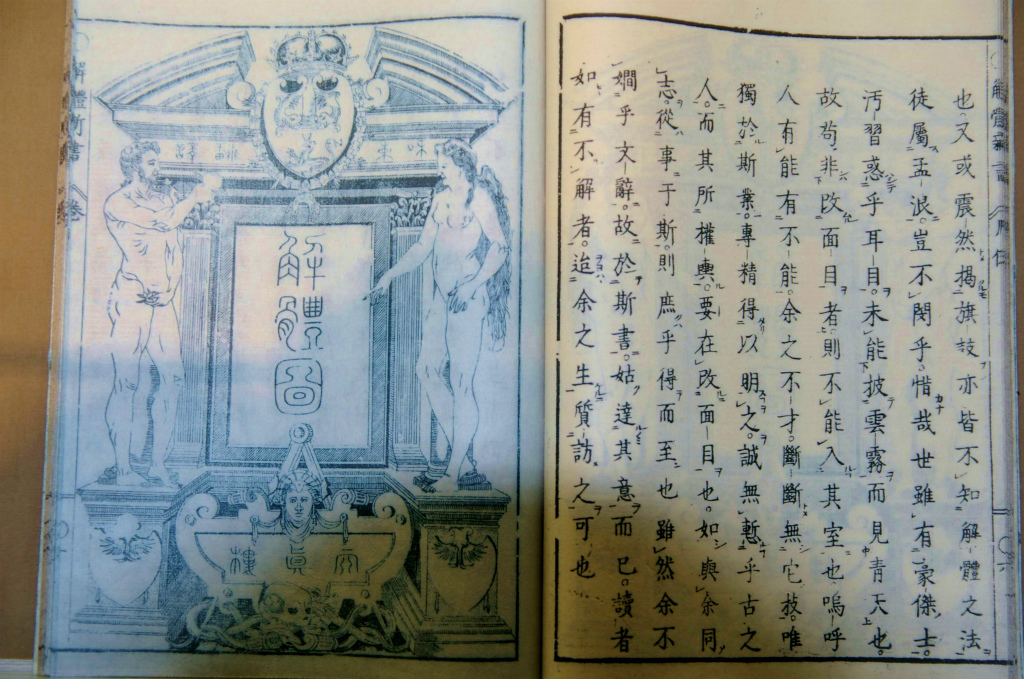 也。又或震然揭旗鼓亦皆不知解體之法
徒屬孟浪。豈不悶乎。惜哉世雖有豪傑士。
汚習惑乎耳目。未能披雲霧而見青天也。
故苟非改面目者則不能入其室也嗚呼
人有能有不能。余之不才。斷斷無它技。唯
獨於斯業。專精得以明之。誠無慙乎古之
人。而其所權輿。要在改面目也。如與余同
志。從事于斯。則庶乎得而至也雖然余不
嫺乎文辭。故於斯書。姑達其意而已。讀者
如有不解者。迨余之生質訪之可也
解體新書
卷
解體圖
天眞樓